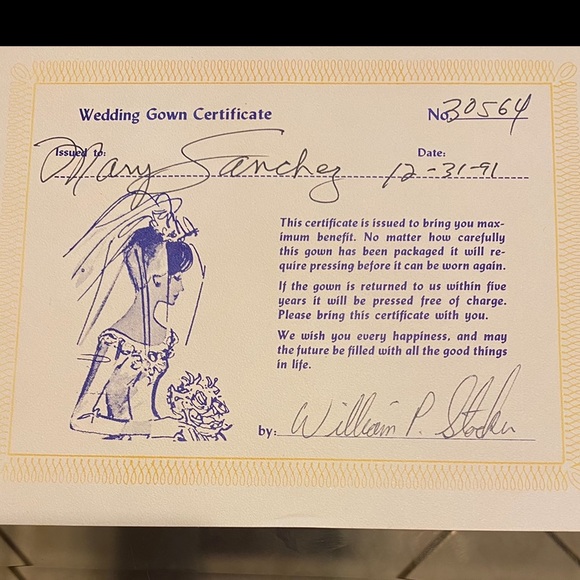 Wedding Gown Certificate
No. 30564
Issued to: Mary Sanchez
Date: 12-31-91
This certificate is issued to bring you max-
imum benefit. No matter how carefully
this gown has been packaged it will re-
quire pressing before it can be worn again.
If the gown is returned to us within five
years it will be pressed free of charge.
Please bring this certificate with you.
We wish you every happiness, and may
the future be filled with all the good things
in life.
by: William P.